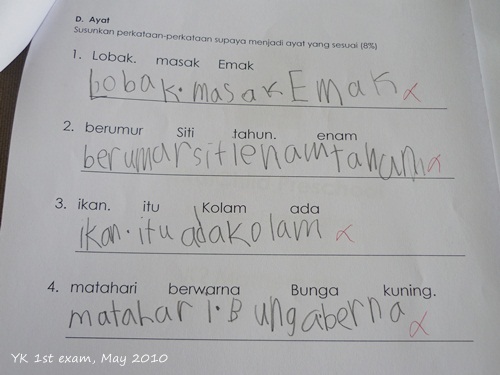 D. Ayat
Susunkan perkataan-perkataan supaya menjadi ayat yang sesuai (8%)
1. Lobak. masak Emak
Lobak. masak Emak
2. berumur Siti tahun. enam
berumarsitienamtahum
3. ikan. itu Kolam ada
ikan. itu adakolam
4. matahari berwarna Bunga kuning.
matahari. Bungaberna
YK 1st exam, May 2010